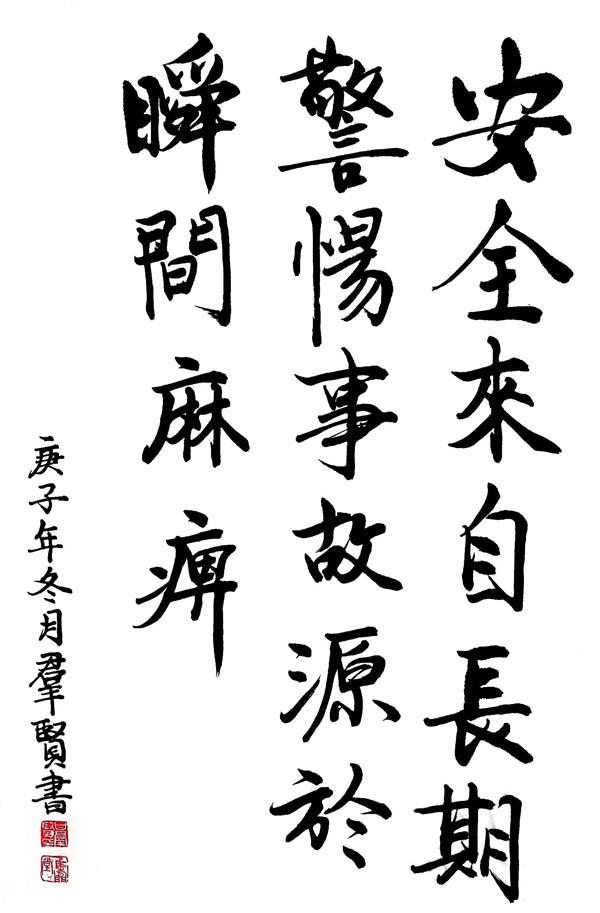 安全來自長期
警惕事故源於
瞬間麻痹
庚子年冬月羣賢書